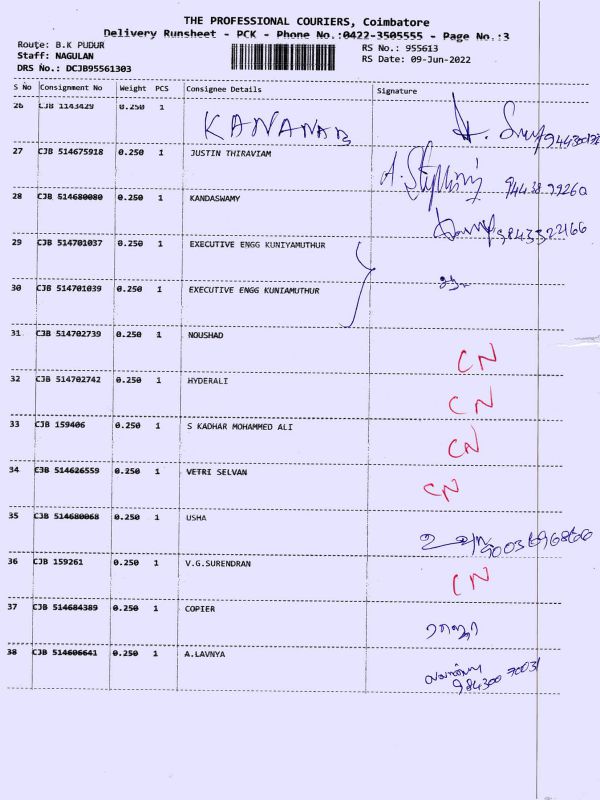 THE PROFESSIONAL COURIERS, Coimbatore
Delivery Runsheet - PCK - Phone No.:0422-3505555 - Page No.:3
Route: B.K PUDUR
RS No.: 955613
Staff: NAGULAN
RS Date: 09-Jun-2022
DRS No.: DCJB95561303
S No Consignment No Weight PCS Consignee Details Signature
26 CJB 1143429 0.250 1
27 CJB 514675918 0.250 1 JUSTIN THIRAVIAM
28 CJB 514680080 0.250 1 KANDASWAMY
29 CJB 514701037 0.250 1 EXECUTIVE ENGG KUNIYAMUTHUR
30 CJB 514701039 0.250 1 EXECUTIVE ENGG KUNIAMUTHUR
31 CJB 514702739 0.250 1 NOUSHAD CN
32 CJB 514702742 0.250 1 HYDERALI CN
33 CJB 159406 0.250 1 S KADHAR MOHAMMED ALI CN
34 CJB 514626559 0.250 1 VETRI SELVAN CN
35 CJB 514680068 0.250 1 USHA
36 CJB 159261 0.250 1 V.G.SURENDRAN CN
37 CJB 514684389 0.250 1 COPIER
38 CJB 514606641 0.250 1 A.LAVNYA
98430070031